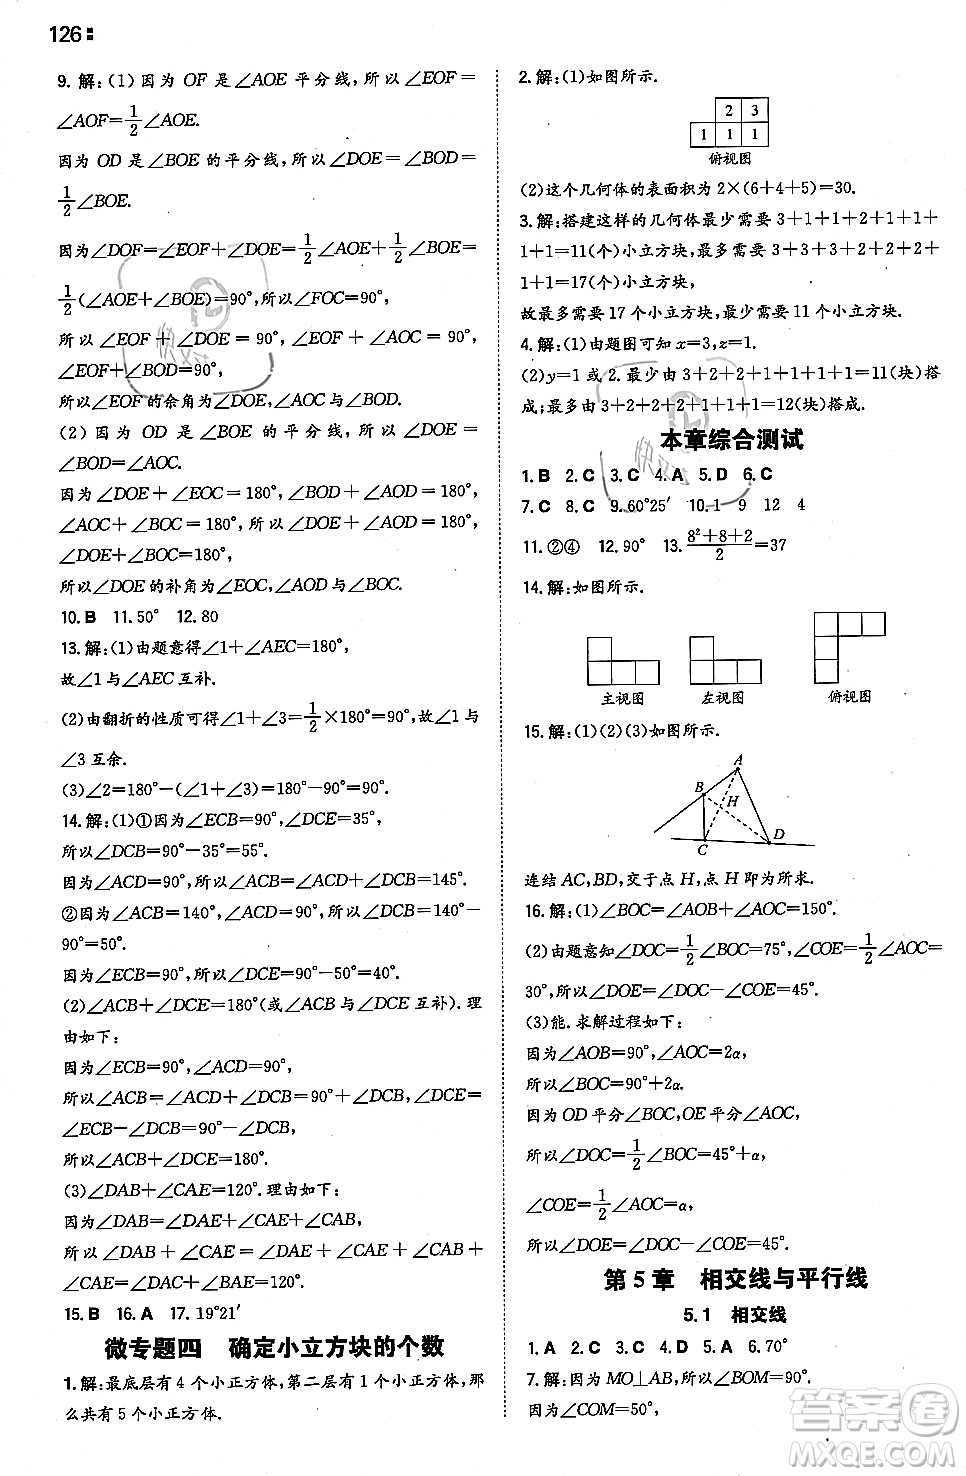 126
9.解:(1)因为 OF 是∠AOE 平分线,所以∠EOF=
∠AOF=1/2∠AOE.
因为 OD 是∠BOE 的平分线,所以∠DOE=∠BOD=
1/2∠BOE.
因为∠DOF=∠EOF+∠DOE=1/2∠AOE+1/2∠BOE=
1/2(∠AOE+∠BOE)=90°,所以∠FOC=90°,
所以∠EOF+∠DOE=90°,∠EOF+∠AOC=90°,
∠EOF+∠BOD=90°,
所以∠EOF的余角为∠DOE,∠AOC与∠BOD.
(2)因为 OD 是∠BOE 的平分线,所以∠DOE=
∠BOD=∠AOC.
因为∠DOE+∠EOC=180°,所以∠DOE=∠AOC,
∠AOC+∠BOC=180°,所以∠DOE+∠AOD=180°,
∠DOE+∠BOC=180°,
所以∠DOE的补角为∠EOC,∠AOD与∠BOC.
10.B 11.50° 12.80
13.解:(1)由题意得∠1+∠AEC=180°,
故∠1与∠AEC互补.
(2)由翻折的性质可得∠1+∠3=1/2×180°=90°,故∠1与
∠3互余.
(3)∠2=180°-(∠1+∠3)=180°-90°=90°.
14.解:(1)①因为∠ECB=90°,∠DCE=35°,
所以∠DCB=90°-35°=55°.
因为∠ACD=90°,所以∠ACB=∠ACD+∠DCB=145°.
②因为∠ACB=140°,∠ACD=90°,所以∠DCB=140°-
90°=50°.
因为∠ECB=90°,所以∠DCE=90°-50°=40°.
(2)∠ACB+∠DCE=180°(或∠ACB与∠DCE互补).理
由如下:
因为∠ECB=90°,∠ACD=90°,
所以∠ACB=∠ACD+∠DCB=90°+∠DCB,∠DCE=
∠ECB-∠DCB=90°-∠DCB,
所以∠ACB+∠DCE=180°.
(3)∠DAB+∠CAE=120°.理由如下:
因为∠DAB=∠DAE+∠CAE+∠CAB,
所以∠DAB+∠CAE=∠DAE+∠CAE+∠CAB+
∠CAE=∠DAC+∠BAE=120°.
15.B 16.A 17.19°21′
微专题四 确定小立方块的个数
1.解:最底层有4个小正方体,第二层有1个小正方体,那
么共有5个小正方体.
2.解:(1)如图所示.
2 3
1 1 1
俯视图
(2)这个几何体的表面积为2×(6+4+5)=30.
3.解:搭建这样的几何体最少需要3+1+1+2+1+1+
1+1=11(个)小立方块,最多需要3+3+3+2+2+2+
1+1=17(个)小立方块,
故最多需要17个小立方块,最少需要11个小立方块.
4.解:(1)由题图可知x=3,z=1.
(2)y=1或2.最少由3+2+2+1+1+1+1=11(块)搭
成;最多由3+2+2+2+1+1+1=12(块)搭成.
本章综合测试
1.B 2.C 3.C 4.A 5.D 6.C
7.C 8.C 9.60°25′ 10.1 9 12 4
11.②④ 12.90° 13.(8²+8+2)/2=37
14.解:如图所示.
主视图 左视图 俯视图
15.解:(1)(2)(3)如图所示.
A
B
H
C
D
连结AC,BD,交于点H,点H即为所求.
16.解:(1)∠BOC=∠AOB+∠AOC=150°.
(2)由题意知∠DOC=1/2∠BOC=75°,∠COE=1/2∠AOC=
30°,所以∠DOE=∠DOC-∠COE=45°.
(3)能.求解过程如下:
因为∠AOB=90°,∠AOC=2α,
所以∠BOC=90°+2α.
因为OD平分∠BOC,OE平分∠AOC,
所以∠DOC=1/2∠BOC=45°+α,
∠COE=1/2∠AOC=α,
所以∠DOE=∠DOC-∠COE=45°.
第5章 相交线与平行线
5.1 相交线
1.A 2.C 3.C 4.D 5.A 6.70°
7.解:因为MO⊥AB,所以∠AOM=90°.
因为∠COM=50°,
答案圈
MXQE.COM